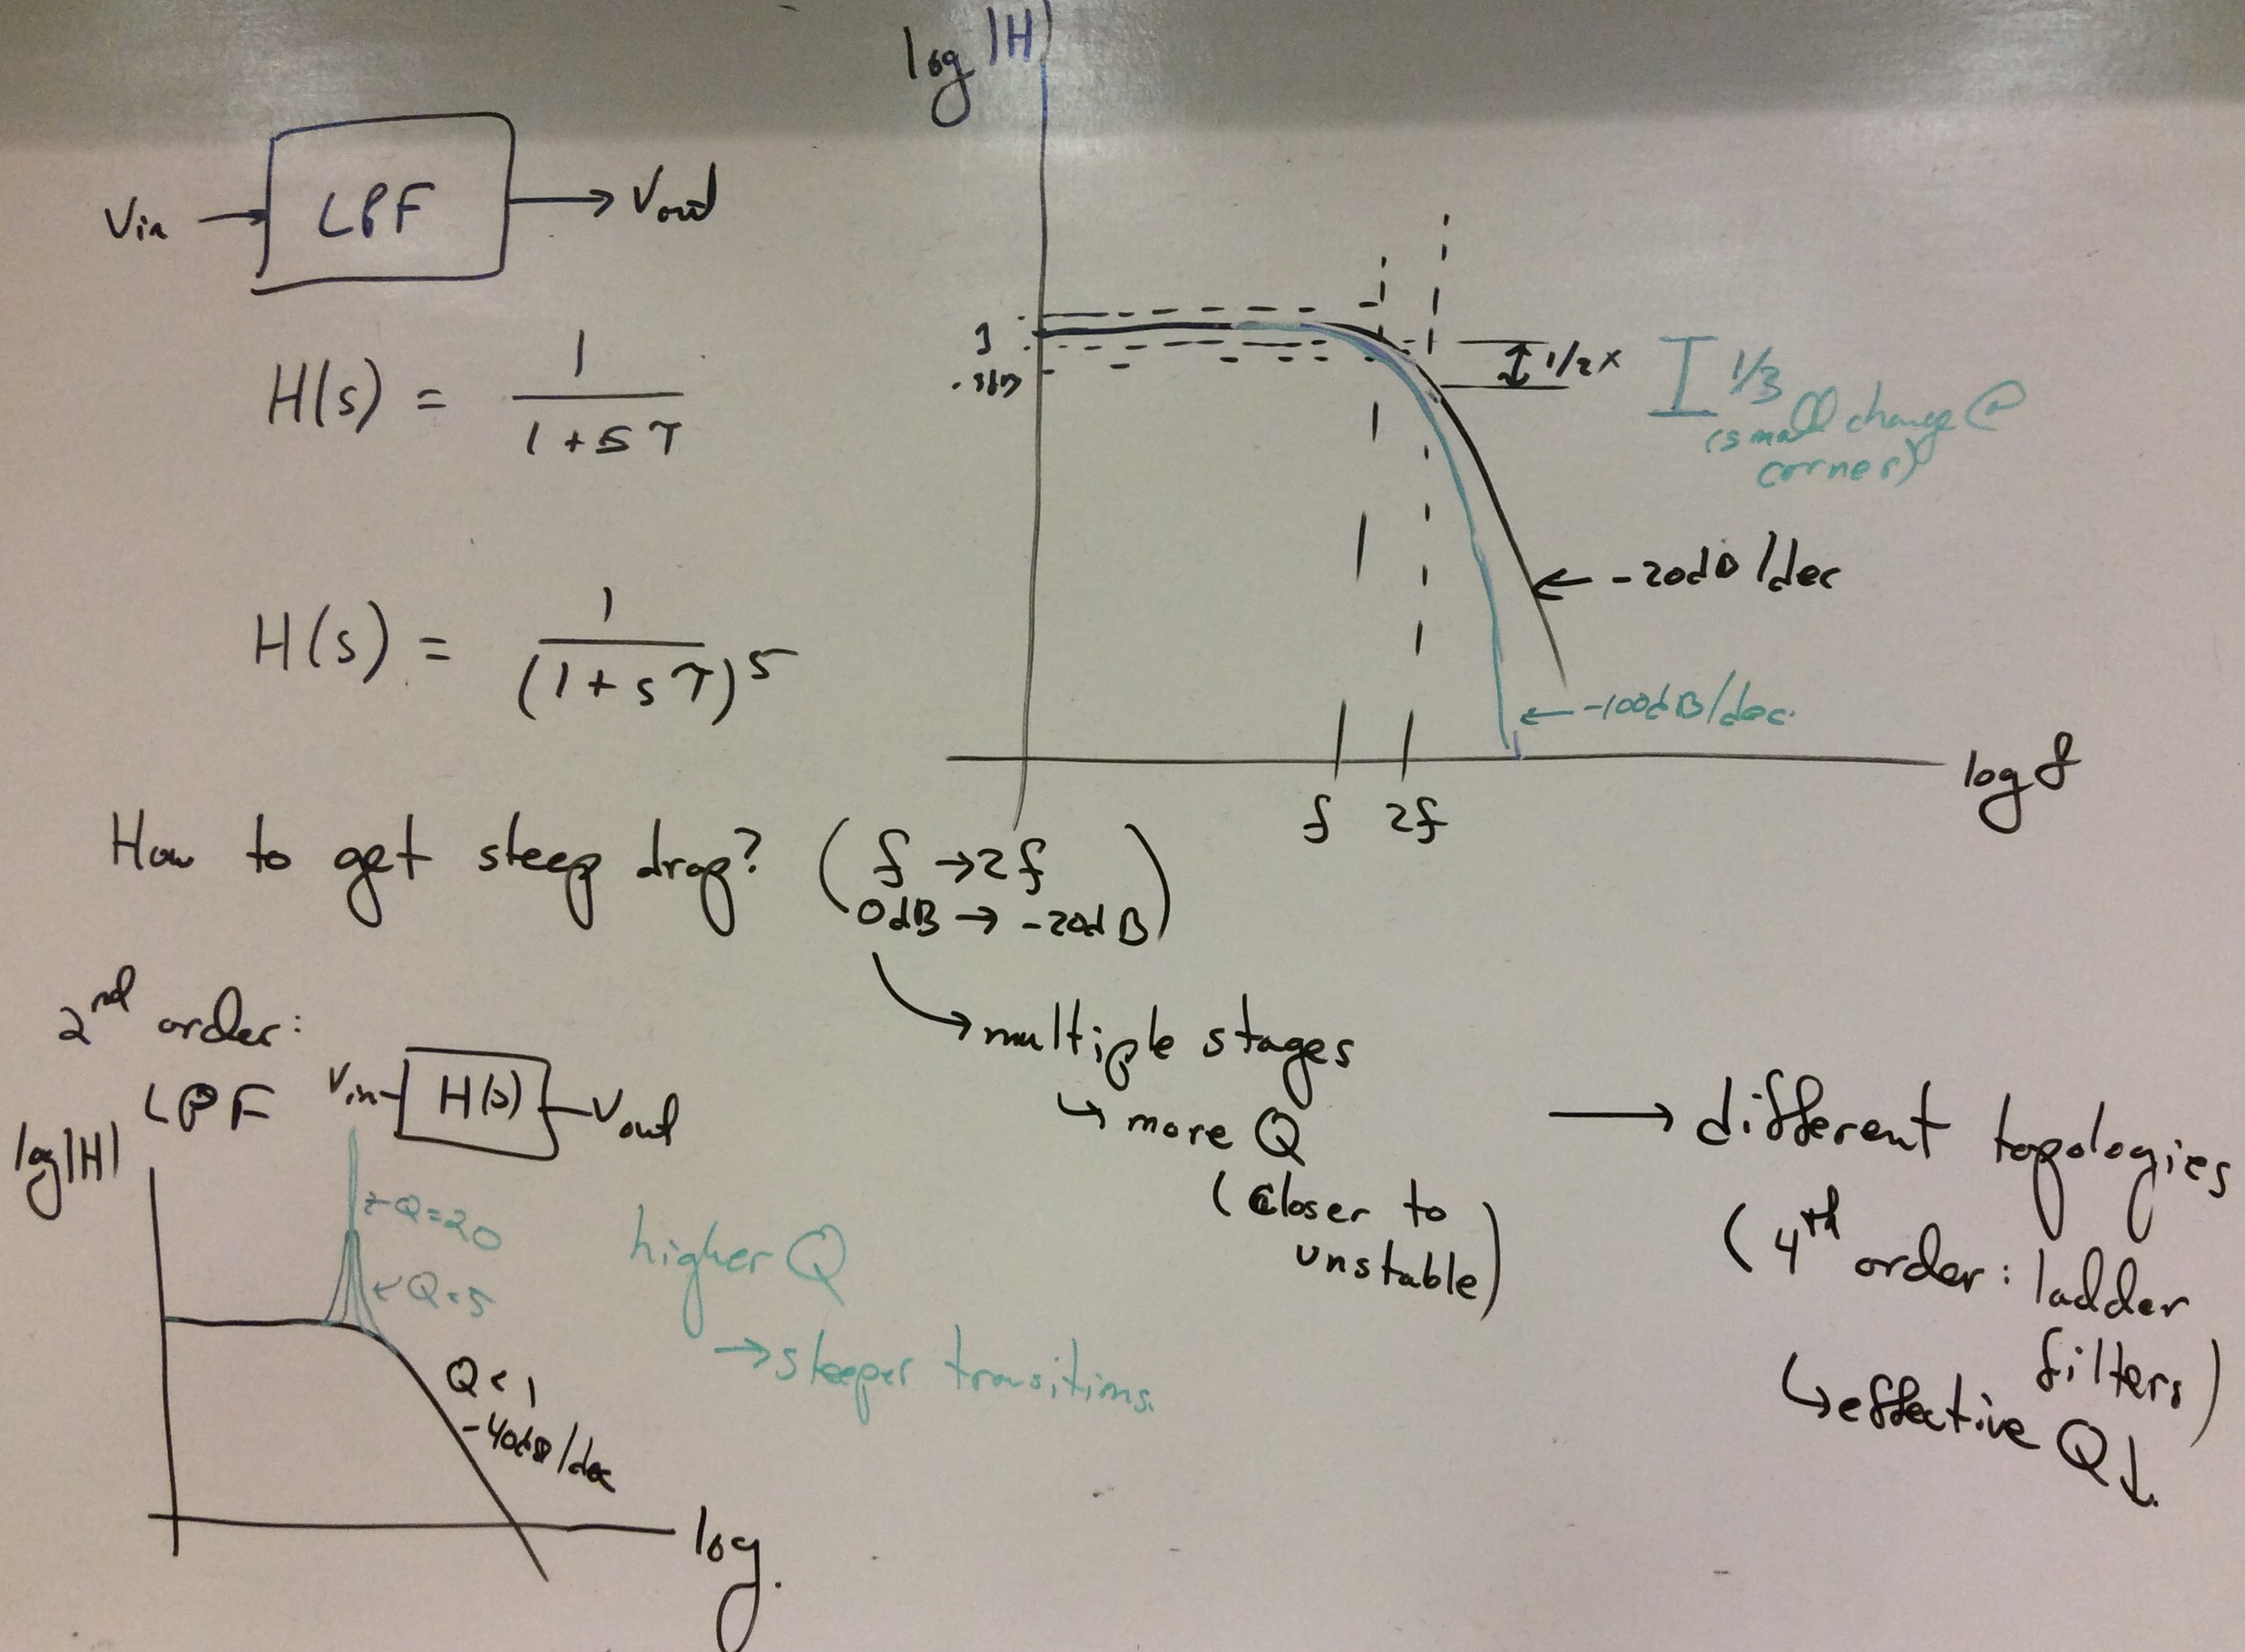 log |H|
Vin → LPF → Vout
H(s) = 1 / (1 + sτ)
1
1/2 x
1/3
(small change @
corner)
← -20dB/dec
H(s) = 1 / (1 + sτ)^5
← -100dB/dec.
log f
f 2f
How to get steep drop? (f → 2f
0dB → -20dB)
→ multiple stages
↳ more Q
(closer to
unstable)
→ different topologies
(4th order: ladder
filters)
↳ effective Q↓
2nd order:
LPF
Vin H(s) Vout
log|H|
← Q=20
← Q=5
higher Q
→ steeper transitions.
Q < 1
-40dB/dec
log.